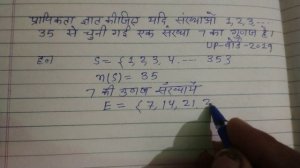 प्रायिकता ज्ञात कीजिए यदि संख्याओं 1,2,3---
35 से चुनी गई एक संख्या 7 का गुणज है।
UP-बोर्ड-2019
हल S = {1,2,3,4.--- 35}
n(S) = 35
7 की गुणज संख्यायें
E = {7,14,21